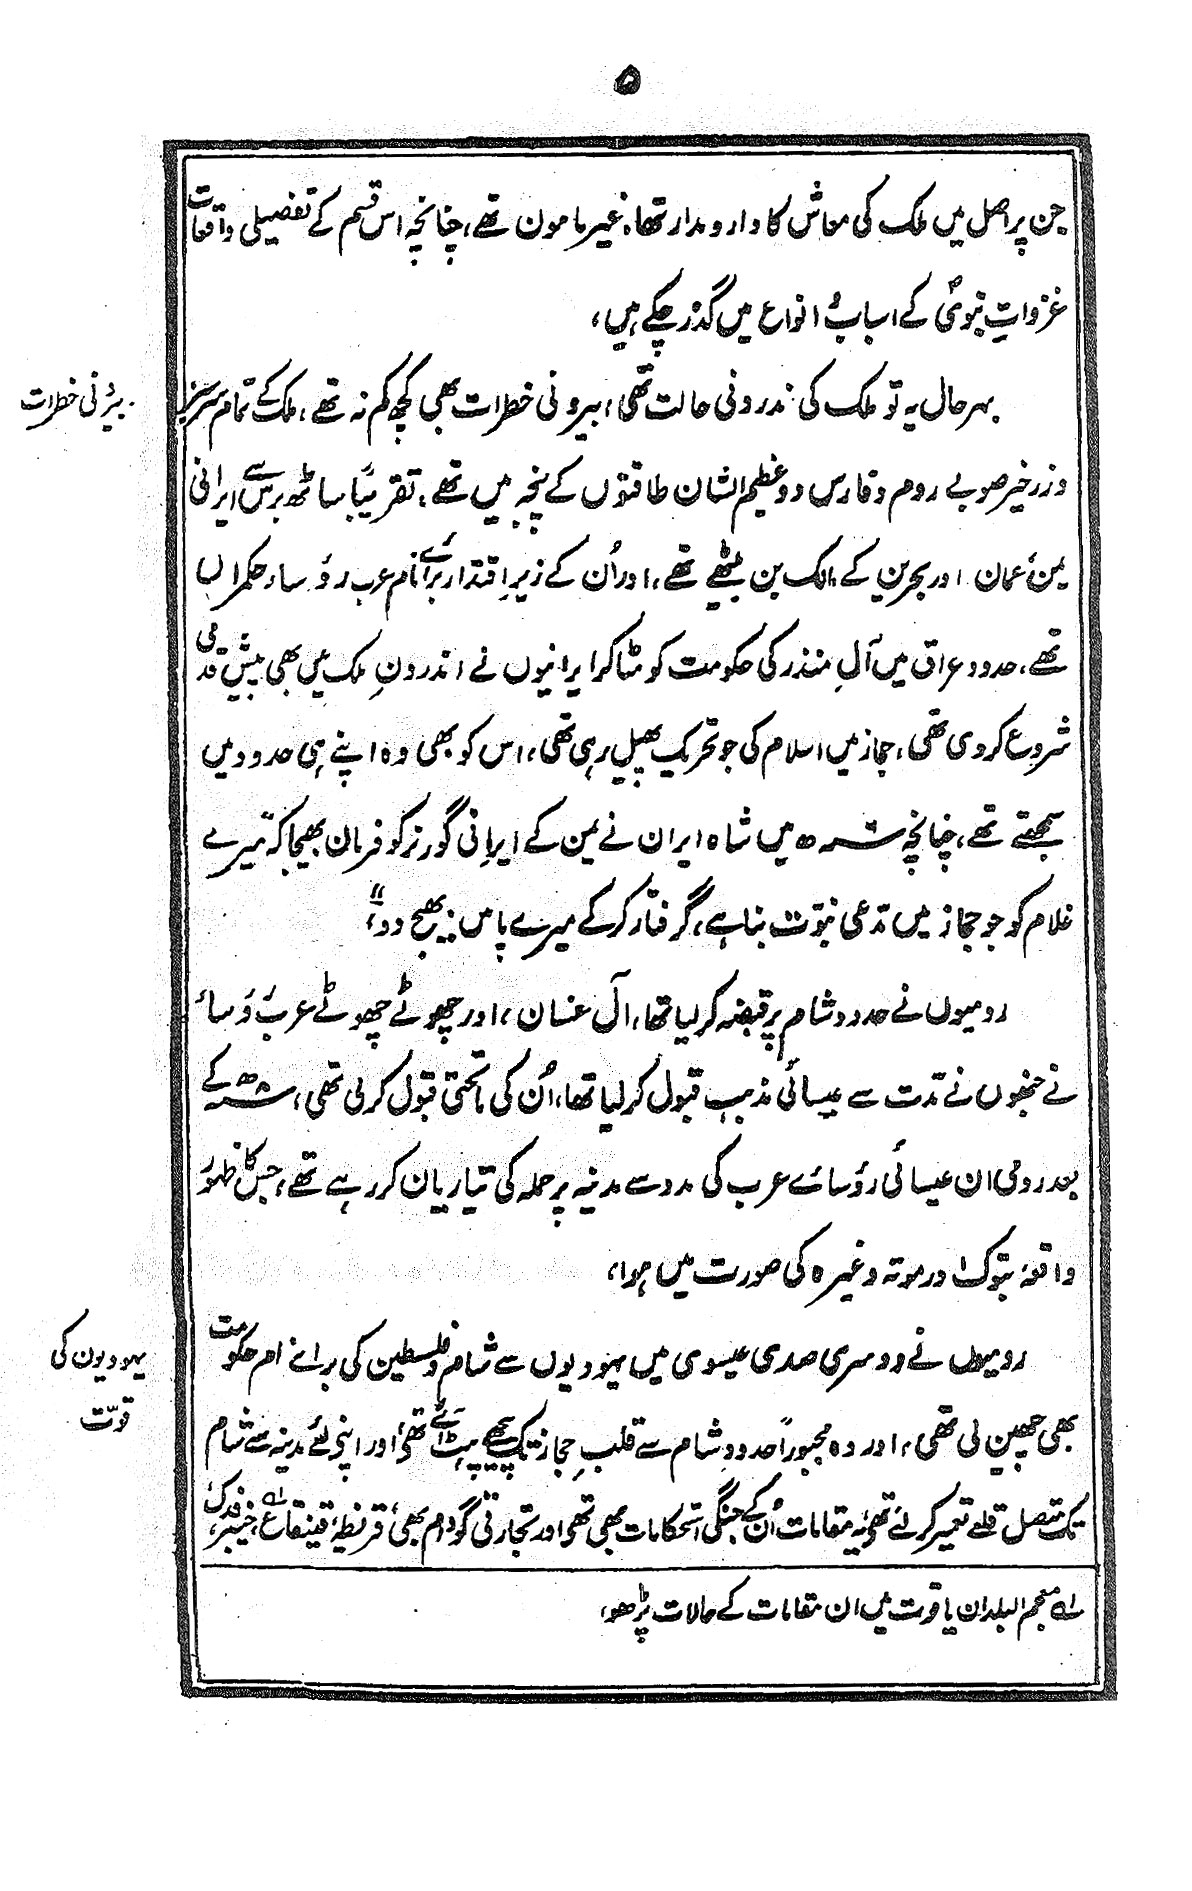 ۵
جن پر اصل میں ملک کی معاش کا دار و مدار تھا، غیر مامون تھے، چنانچہ اس قسم کے تفصیلی واقعات
غزواتِ نبویؐ کے اسباب و انواع میں گذر چکے ہیں،
بیرونی خطرات
بہر حال یہ تو ملک کی اندرونی حالت تھی، بیرونی خطرات بھی کچھ کم نہ تھے، ملک کے تمام سرسبز
و زرخیز صوبے روم و فارس دو عظیم الشان طاقتوں کے پنجہ میں تھے، تقریباً ساٹھ برس سے ایرانی
یمن، عمان اور بحرین کے مالک بن بیٹھے تھے، اور اُن کے زیرِ اقتدار برائے نام عرب رؤسا حکمراں
تھے، حدود عراق میں آلِ منذر کی حکومت کو مٹا کر ایرانیوں نے اندرونِ ملک میں بھی پیش قدمی
شروع کر دی تھی، حجاز میں اسلام کی جو تحریک پھیل رہی تھی، اس کو بھی وہ اپنے ہی حدود میں
سمجھتے تھے، چنانچہ میں شاہ ایران نے یمن کے ایرانی گورنر کو فرمان بھیجا کہ "میرے
غلام کو جو حجاز میں مدعی نبوّت بنا ہے، گرفتار کر کے میرے پاس بھیج دو"،
رومیوں نے حدود شام پر قبضہ کر لیا تھا، آل غسان، اور چھوٹے چھوٹے عرب رؤسا
نے جنھوں نے مدّت سے عیسائی مذہب قبول کر لیا تھا، اُن کی ماتحتی قبول کر لی تھی، سنہ ۸ھ کے
بعد رومی ان عیسائی رؤساے عرب کی مدد سے مدینہ پر حملہ کی تیاریاں کر رہے تھے، جس کا ظہور
واقعۂ تبوک اور موتہ وغیرہ کی صورت میں ہوا،
یہودیوں کی
قوّت
رومیوں نے دوسری صدی عیسوی میں یہودیوں سے شام و فلسطین کی براے نام حکومت
بھی چھین لی تھی، اور وہ مجبوراً حدودِ شام سے قلبِ حجاز تک پیچھے ہٹ آئے تھے، اور اپنے لئے مدینہ سے شام
تک متصل قلعے تعمیر کر لئے تھے، یہ مقامات اُن کے جنگی استحکامات بھی تھے اور تجارتی گودام بھی، قریظہ، قینقاع، خیبر، فدک،
لہ معجم البلدان یاقوت میں ان مقامات کے حالات پڑھو،